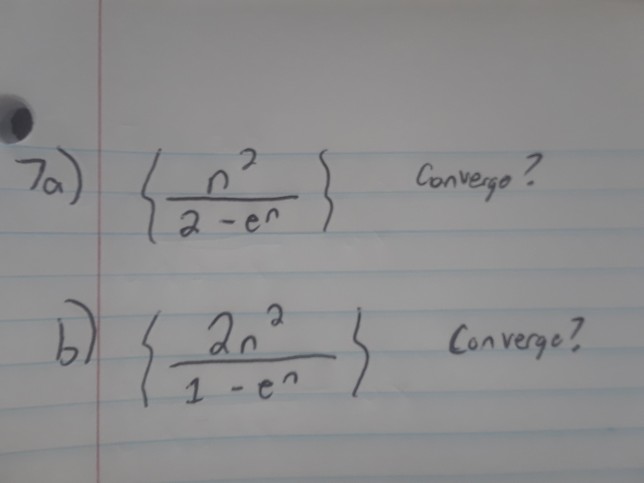 7a) { n² / (2 - eⁿ) } Converge?
b) { 2n² / (1 - eⁿ) } Converge?